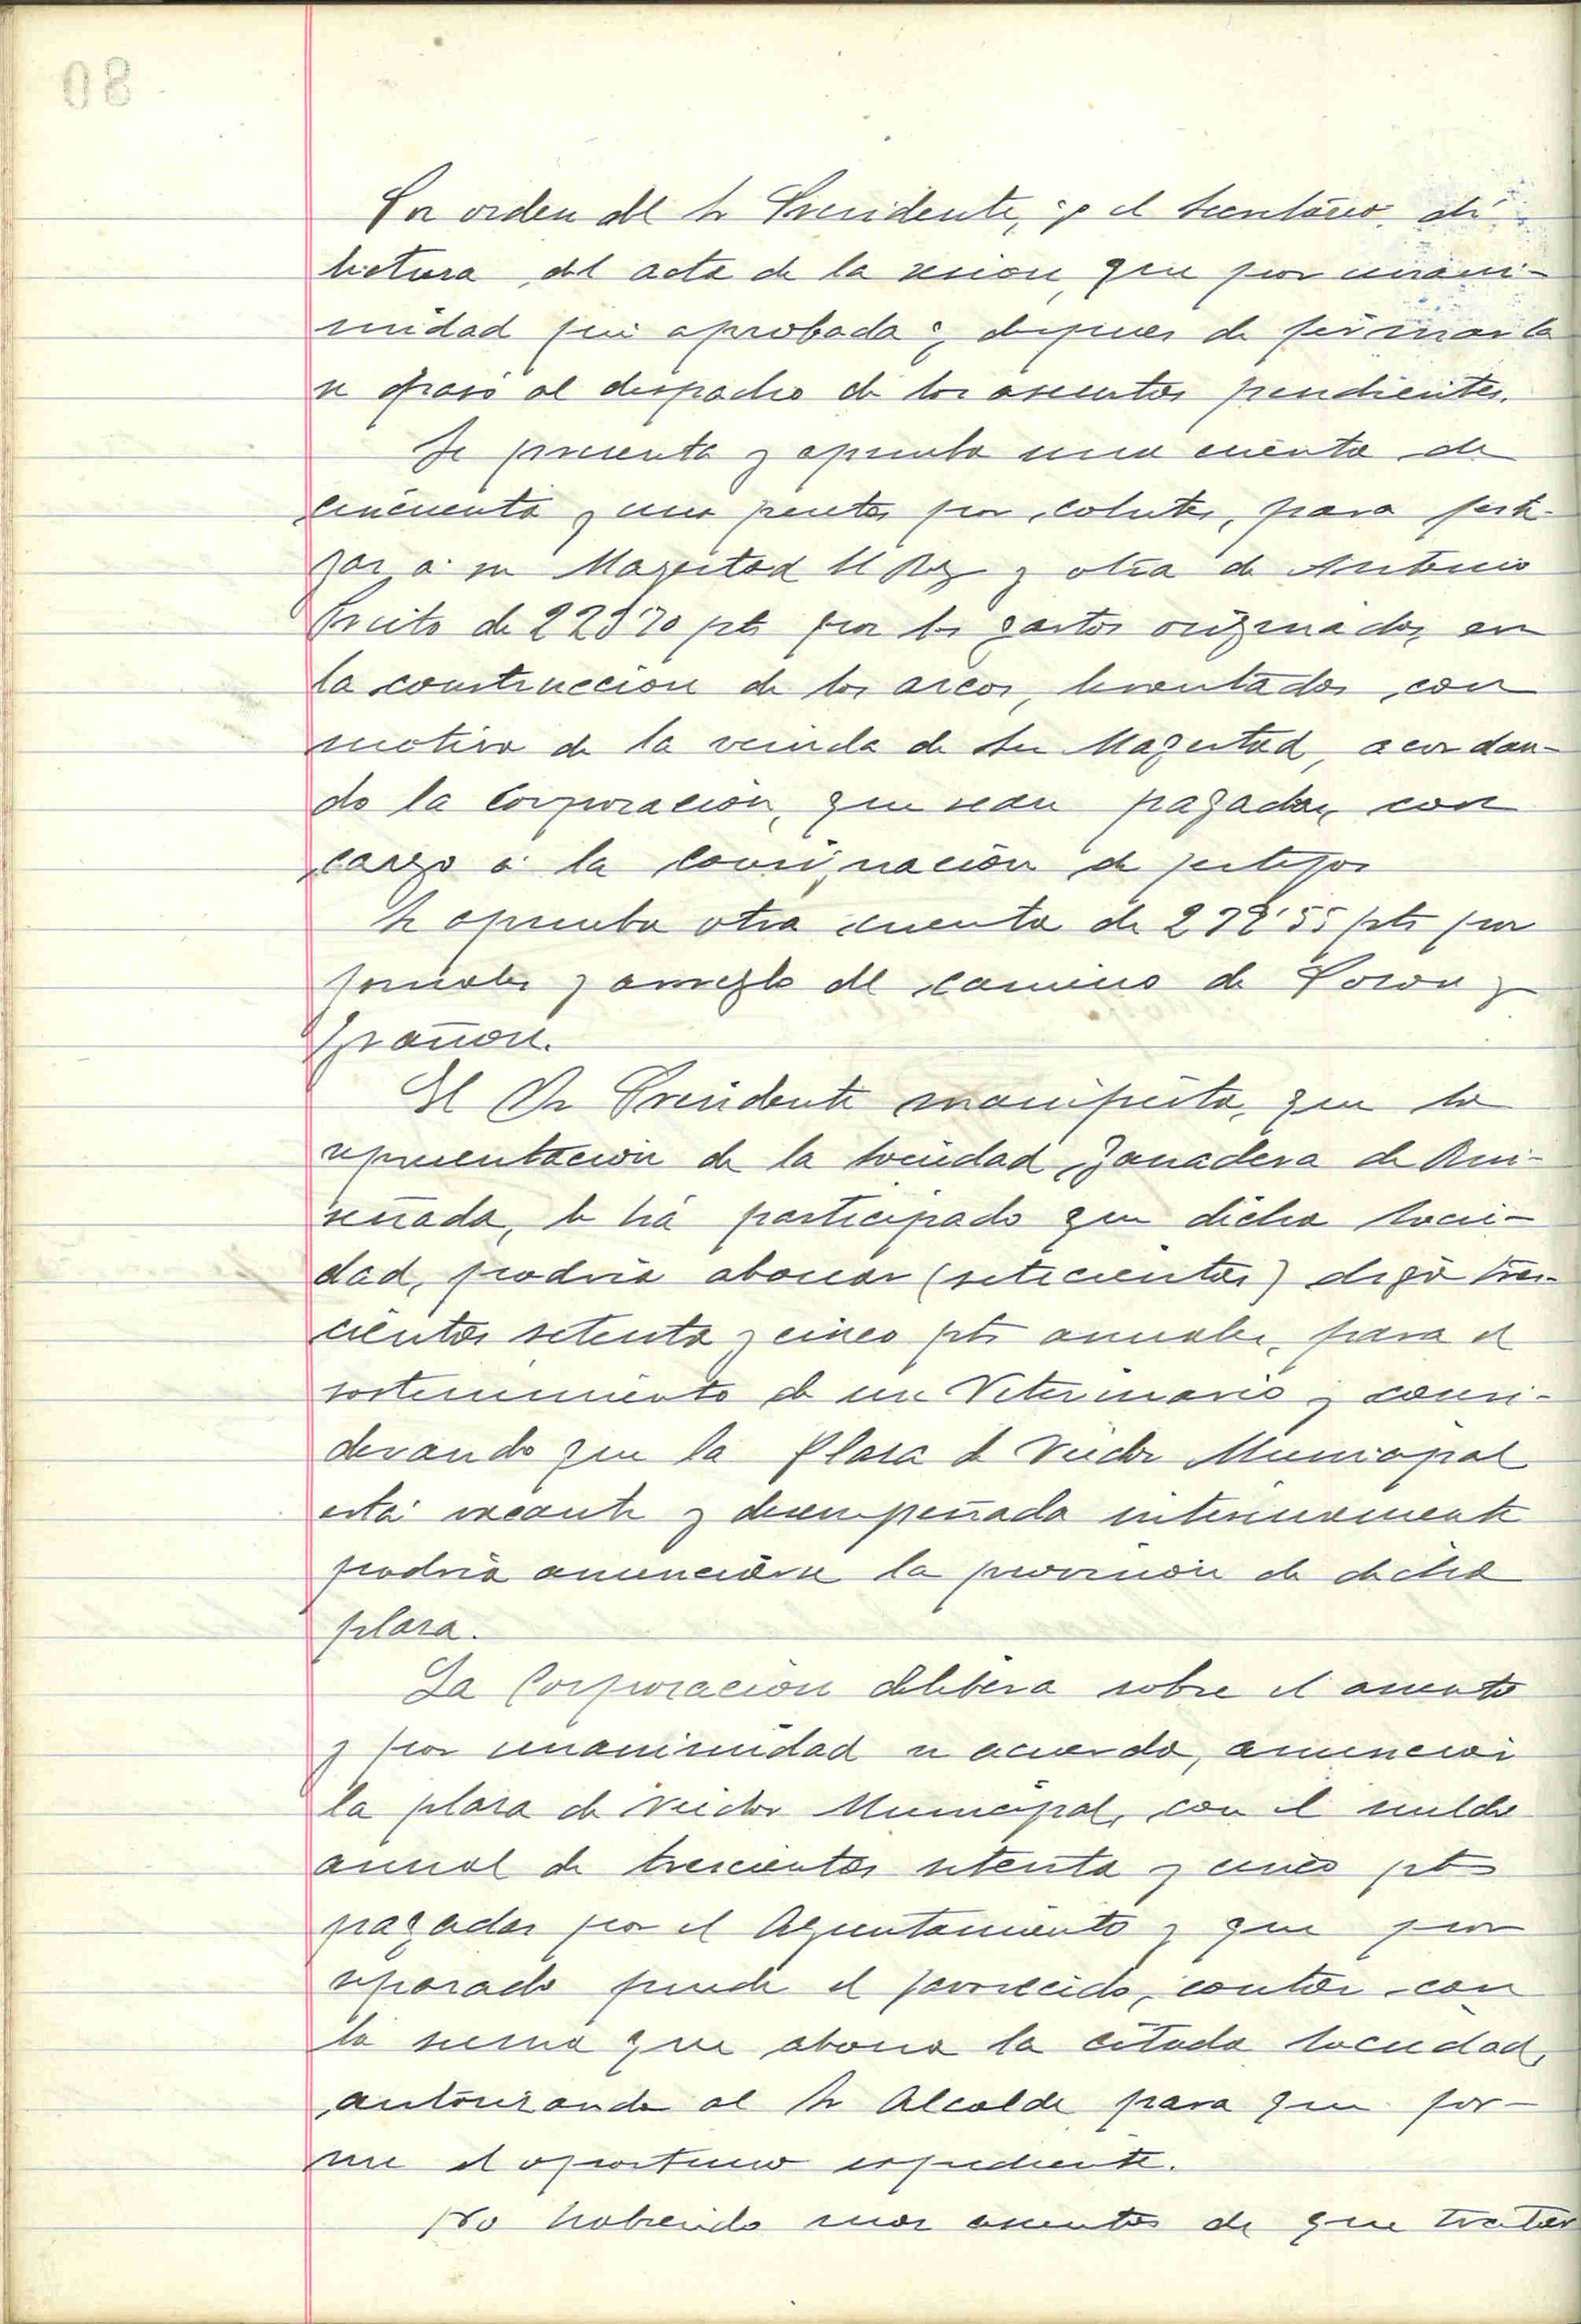 Por orden del Sr Presidente, yo el Secretario di
lectura del acta de la sesion, que por unani-
midad fué aprobada y despues de firmarla
se pasó al despacho de los asuntos pendientes.
Se presenta y aprueba una cuenta de
cincuenta y una pesetas por cohetes, para feste-
jar a su Magestad El Rey y otra de Antonio
de pts por los gastos originados en
la construccion de los arcos, levantados con
motivo de la venida de Su Magestad, acordan-
do la Corporación, que sean pagadas con
cargo á la Consignación de festejos
Se aprueba otra cuenta de pts por
jornales y arreglo del camino de y
Grañon.
El Sr Presidente manifiesta, que la
representacion de la Sociedad Ganadera de Rui-
señada, le há participado que dicha Socie-
dad, podria abonar (setecientas) digo tres-
cientas setenta y cinco pts anuales, para el
sostenimiento de un Veterinario y consi-
derando que la Plaza de Veedor Municipal
está vacante y desempeñada interinamente
podria anunciarse la provision de dicha
plaza.
La Corporacion delibera sobre el asunto
y por unanimidad se acuerda, anunciar
la plaza de Veedor Municipal, con el sueldo
annual de trescientas setenta y cinco pts
pagadas por el Ayuntamiento y que por
separado puede el favorecido, contar con
la suma que abona la citada Sociedad,
autorizando al Sr Alcalde para que for-
me el oportuno expediente.
No habiendo mas asuntos de que tratar